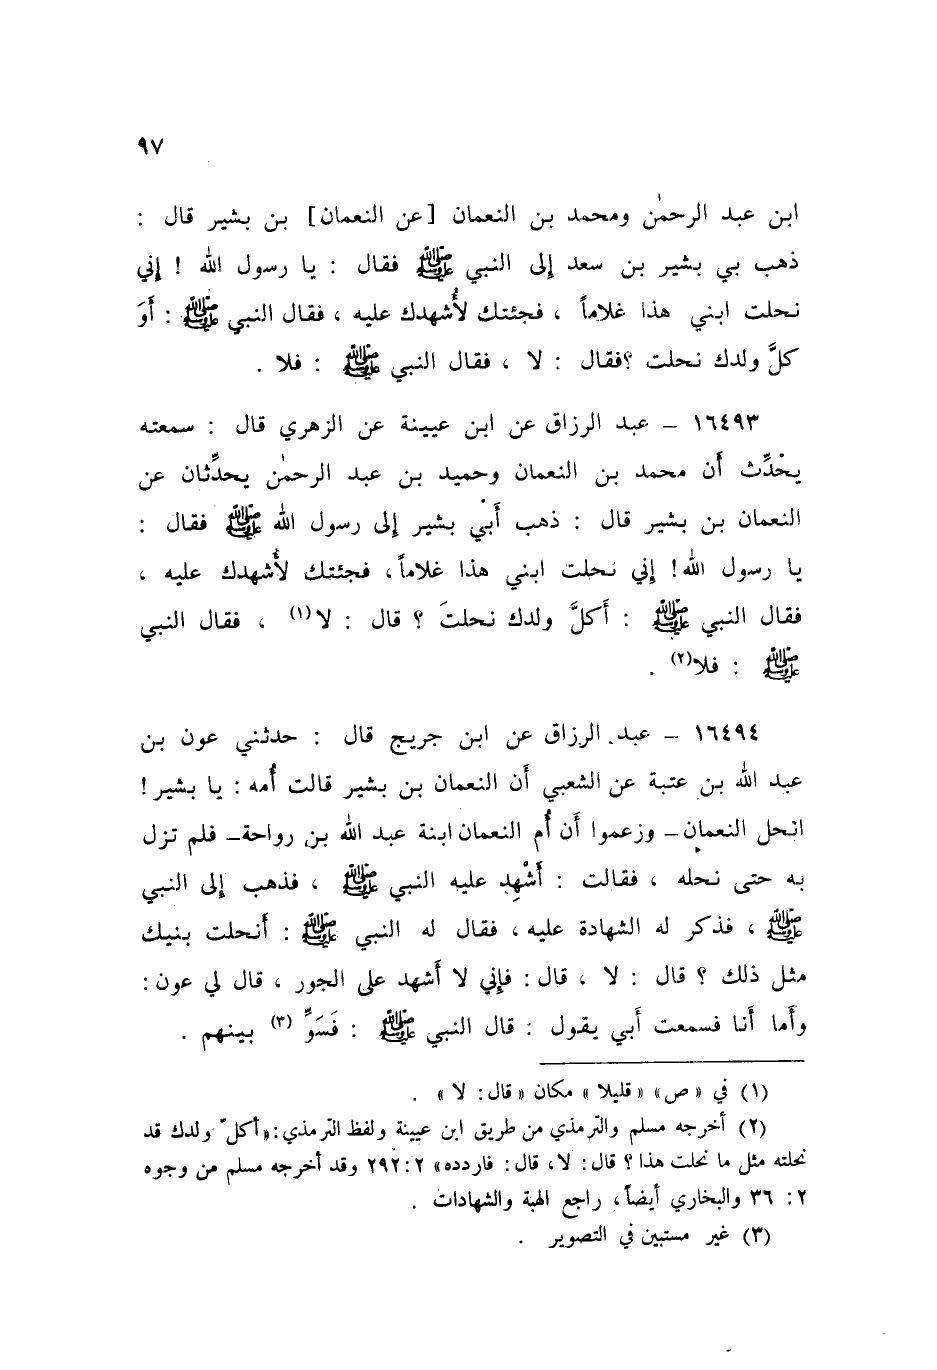 ٩٧
ابن عبد الرحمٰن ومحمد بن النعمان [عن النعمان] بن بشير قال :
ذهب بي بشير بن سعد إلى النبي ﷺ فقال : يا رسول الله ! إني
نحلت ابني هذا غلاماً ، فجئتك لأُشهدك عليه ، فقال النبي ﷺ : أَوَ
كلَّ ولدك نحلت ؟فقال : لا ، فقال النبي ﷺ : فلا .
١٦٤٩٣ – عبد الرزاق عن ابن عيينة عن الزهري قال : سمعته
يحْدِّث أَن محمد بن النعمان وحميد بن عبد الرحمٰن يحدِّثان عن
النعمان بن بشير قال : ذهب أَبي بشير إلى رسول الله ﷺ فقال :
يا رسول الله! إني نحلت ابني هذا غلاماً ، فجئتك لأُشهدك عليه ،
فقال النبي ﷺ : أَكلَّ ولدك نحلتَ ؟ قال : لا(١) ، فقال النبي
ﷺ : فلا(٢) .
١٦٤٩٤ – عبد الرزاق عن ابن جريج قال : حدثني عون بن
عبد الله بن عتبة عن الشعبي أَن النعمان بن بشير قالت أُمه : يا بشير !
انحل النعمان – وزعموا أَن أُم النعمان ابنة عبد الله بن رواحة– فلم تزل
به حتى نحله ، فقالت : أَشْهِد عليه النبي ﷺ ، فذهب إلى النبي
ﷺ ، فذكر له الشهادة عليه ، فقال له النبي ﷺ : أَنحلت بنيك
مثل ذلك ؟ قال : لا ، قال : فإني لا أَشهد على الجور ، قال لي عون :
وأَما أَنا فسمعت أَبي يقول : قال النبي ﷺ : فَسَوِّ (٣) بينهم .
(١) في « ص » « قليلا » مكان « قال : لا » .
(٢) أخرجه مسلم والترمذي من طريق ابن عيينة ولفظ الترمذي : « أكلّ ولدك قد
نحلته مثل ما نحلت هذا ؟ قال : لا، قال : فاردده» ٢ : ٢٩٢ وقد أخرجه مسلم من وجوه
٢ : ٣٦ والبخاري أيضاً ، راجع الهبة والشهادات .
(٣) غير مستبين في التصوير .